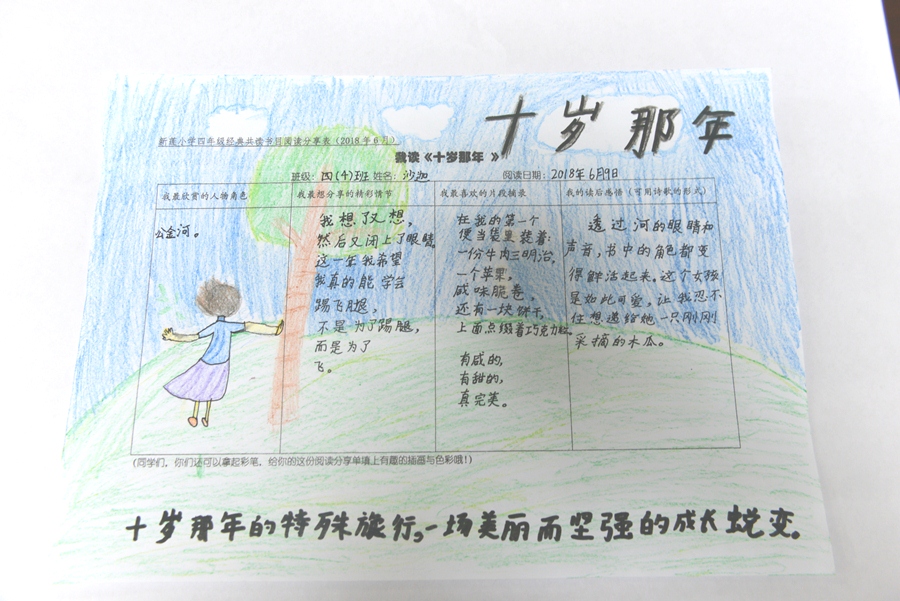 十岁那年
新莲小学四年级经典共读书目阅读分享表(2018年6月)
我读《十岁那年 》
班级: 四(4)班 姓名: 沙迦 阅读日期: 2018年6月9日
我最欣赏的人物角色
公金河。
我最想分享的精彩情节
我想了又想,
然后又闭上了眼睛
这一生我希望
我真的能 学会
踢飞腿,
不是为了踢腿,
而是为了
飞。
我最喜欢的片段摘录
在我的第一个
便当袋里装着:
一份牛肉三明治,
一个苹果。
咸味脆卷,
还有一块饼干,
上面点缀着巧克力粒。
有咸的,
有甜的,
真完美。
我的读后感悟(可用诗歌的形式)
透过河的眼睛和
声音,书中的角色都变
得鲜活起来。这个女孩
是如此可爱,让我忍不
住想递给她一只刚刚
采摘的木瓜。
(同学们,你们还可以拿起彩笔,给你的这份阅读分享单填上有趣的插画与色彩哦!)
十岁那年的特殊旅行,一场美丽而坚强的成长蜕变。